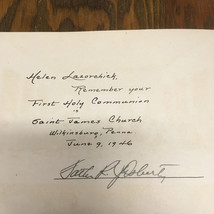 Helen Lazorchick,
Remember your
First Holy Communion
in
Saint James Church
Wilkinsburg, Penna
June 9, 1946